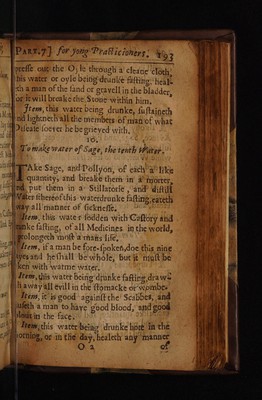 PART.7] for yong Practicioners. 193
presse out the Oyle through a cleane cloth,
this water or oyle being drunke fasting, heal-
eth a man of the sand or gravell in the bladder,
or it will breake the Stone within him.
Item, this water being drunke, sustaineth
and lighneth all the members of man of what
Disease soever he be grieved with.
10.
To make water of Sage, the tenth Water.
TAke Sage, and Pollyon, of each a like
quantity, and breake them in a morter,
and put them in a Stillatorie, and distill
Water thereof this water drunke fasting, eateth
way all manner of sicknesse.
Item, this water sodden with Castory and
drunke fasting, of all Medicines in the world,
prolongeth most a mans life.
Item, if a man be fore-spoken, doe this nine
dayes and he shall be whole, but it must be
taken with warme water.
Item, this water being drunke fasting draw-
eth away all evill in the stomacke or wombe.
Item, it is good against the Scabbes, and
causeth a man to have good blood, and good
colour in the face.
Item, this water being drunke hote in the
morning, or in the day, healeth any manner
O 2 of